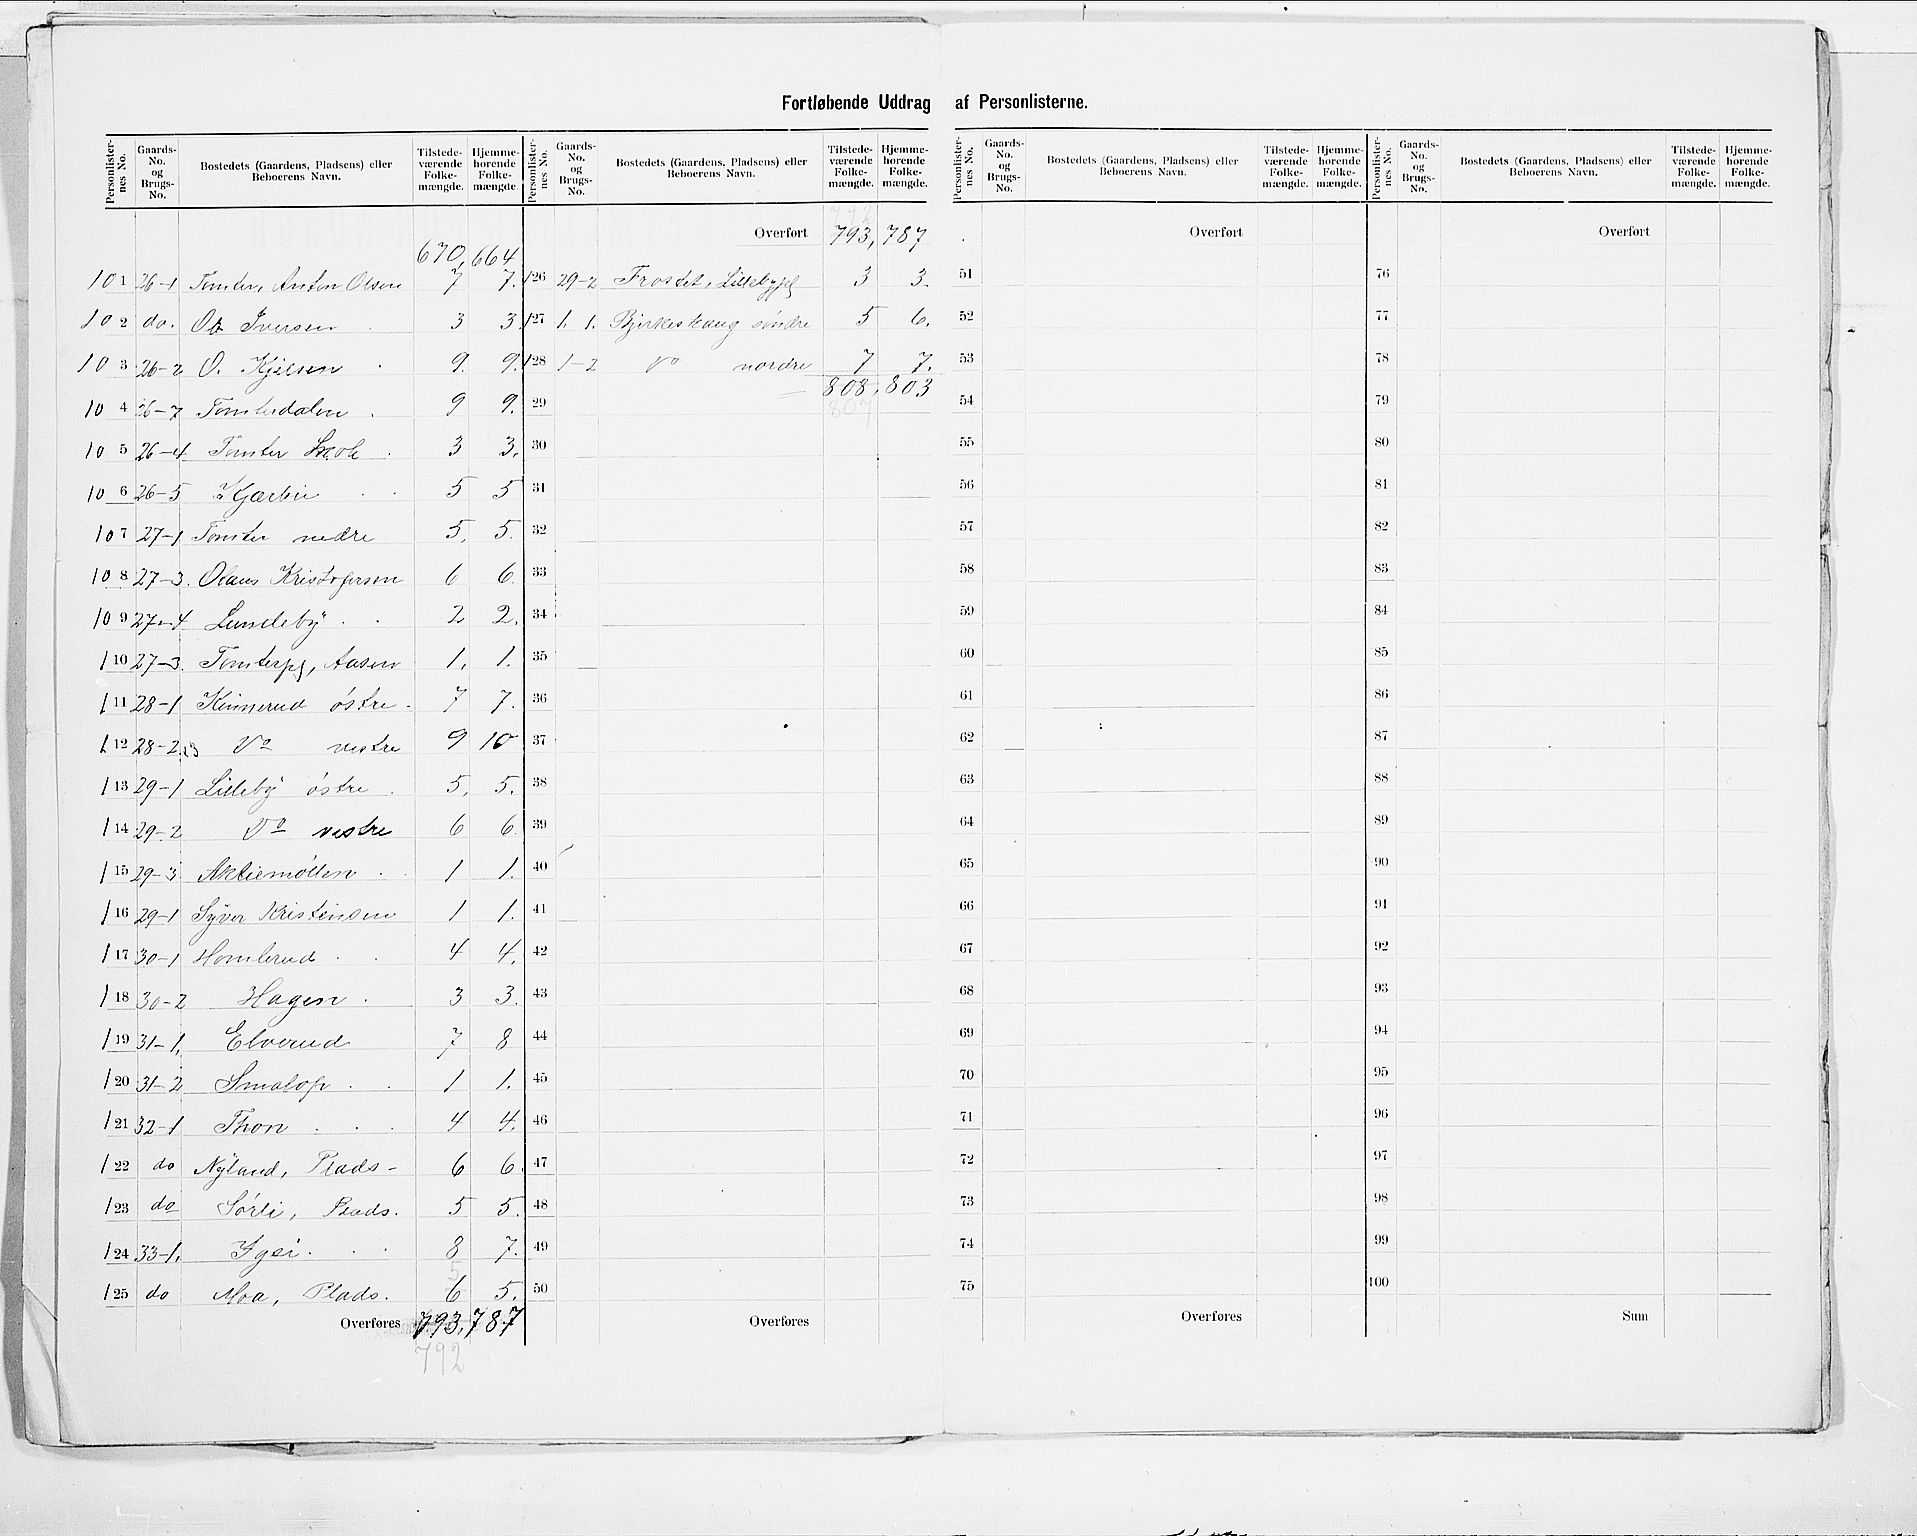 Fortløbende Uddrag af Personlisterne.
Personlisternes No. Gaards-No. og Brugs-No. Bostedets (Gaardens, Pladsens) eller Beboerens Navn. Tilstedeværende Folkemængde. Hjemmehorende Folkemængde.
670, 664
101 26-1 Tomter, Anton Olsen 7 7.
102 do. Ole Iversen 3 3.
103 26-2 O. Kjelsen 9. 9.
104 26-7 Tomterdalen 9 9.
105 26-4 Tomter Skole 3 3.
106 26-5 Kjærbu 5 5
107 27-1 Tomter nedre 5. 5.
108 27-3. Olaus Kristofersen 6 6.
109 27-4 Lundeby 2 2.
110 27-3. Tomterpl, Aasen 1. 1.
111 28-1 Kinnerud østre. 7 7.
112 28-2,3 Do vestre 9 10
113 29-1 Lilleby østre 5. 5.
114 29-2 Do vestre 6 6.
115 29-3 Aktiemøllen 1 1.
116 29-1 Syver Kristensen 1 1.
117 30-1 Homlerud 4 4.
118 30-2 Hagen 3 3.
119 31-1. Elverud 7 8
120 31-2 Smalop 1 1.
121 32-1 Thon 4 4.
122 do Nyland, Plads- 6 6.
123 do Sørli, Plads. 5 5.
124 33-1. 8 7.
5
125 do Moa, Plads. 6 5.
Overføres 793, 787
792
Personlisternes No. Gaards-No. og Brugs-No. Bostedets (Gaardens, Pladsens) eller Beboerens Navn. Tilstedeværende Folkemængde. Hjemmehorende Folkemængde.
792
Overført 793, 787
126 29-2 Frostet, Lillebypl 3 3.
127 1. 1. Bjerkeskaug søndre 5 6.
128 1-2 Do nordre 7 7.
808, 803
29
807
30
31
32
33
34
35
36
37
38
39
40
41
42
43
44
45
46
47
48
49
50
Overføres
Personlisternes No. Gaards-No. og Brugs-No. Bostedets (Gaardens, Pladsens) eller Beboerens Navn. Tilstedeværende Folkemængde. Hjemmehorende Folkemængde.
Overført
51
52
53
54
55
56
57
58
59
60
61
62
63
64
65
66
67
68
69
70
71
72
73
74
75
Overføres
Personlisternes No. Gaards-No. og Brugs-No. Bostedets (Gaardens, Pladsens) eller Beboerens Navn. Tilstedeværende Folkemængde. Hjemmehorende Folkemængde.
Overført
76
77
78
79
80
81
82
83
84
85
86
87
88
89
90
91
92
93
94
95
96
97
98
99
100
Sum